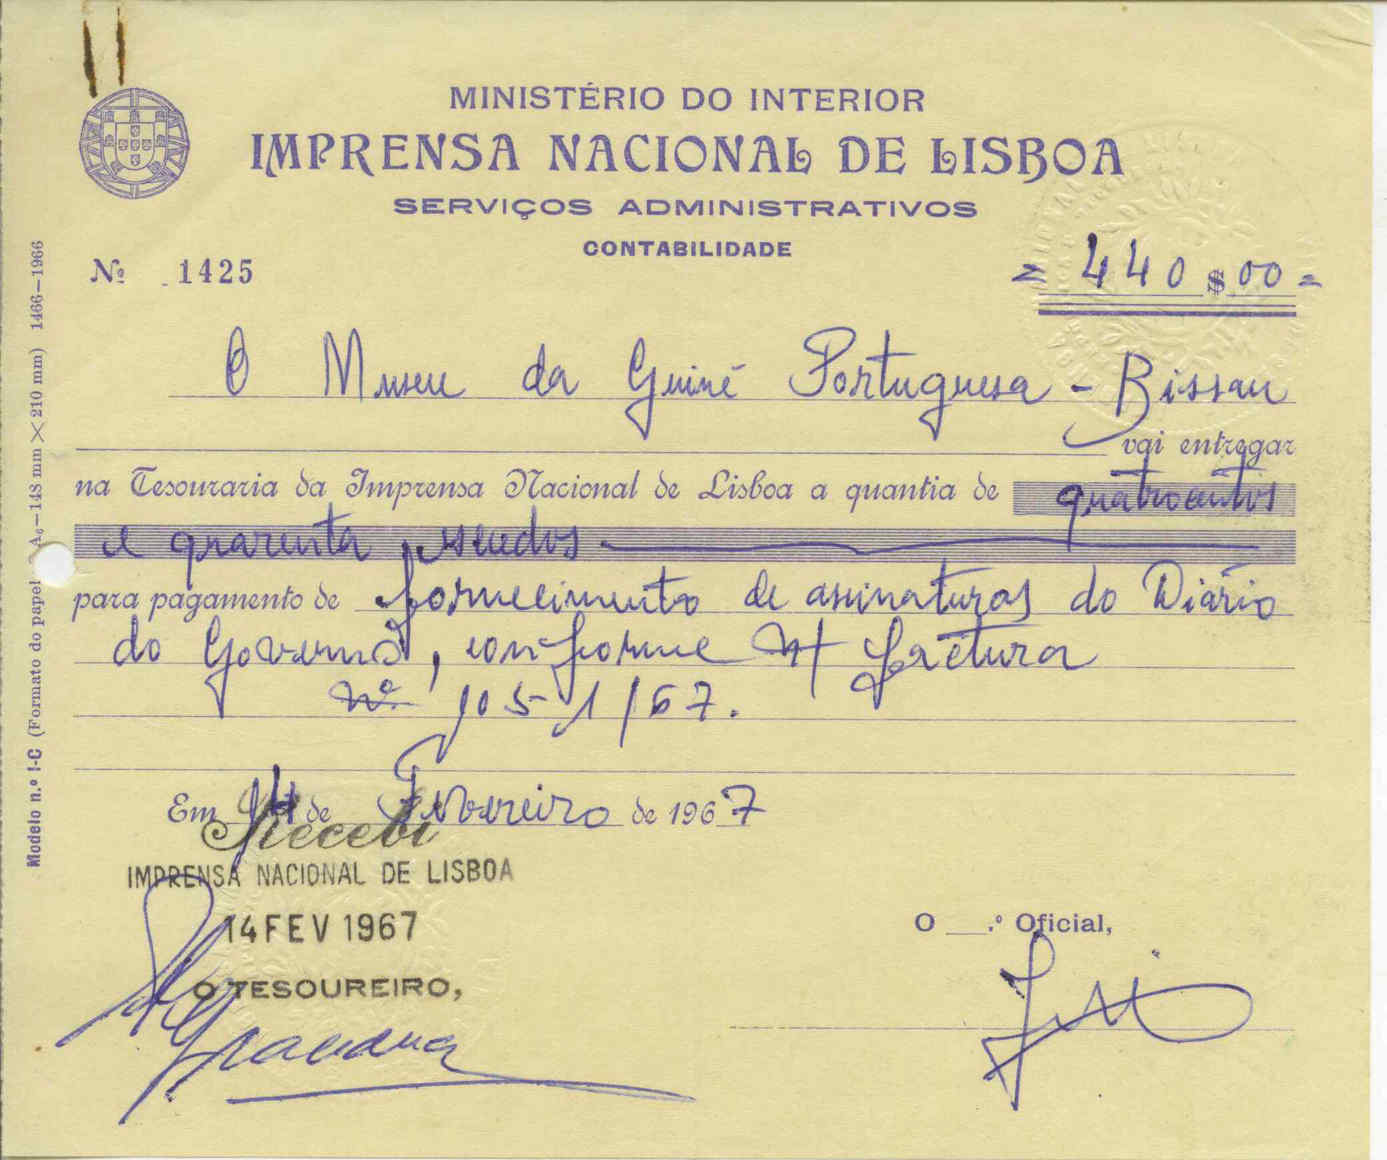 MINISTÉRIO DO INTERIOR
IMPRENSA NACIONAL DE LISBOA
SERVIÇOS ADMINISTRATIVOS
CONTABILIDADE
Nº 1425
= 440$00 =
O Museu da Guiné Portuguesa - Bissau
vai entregar
na Tesouraria da Imprensa Nacional de Lisboa a quantia de quatrocentos
e quarenta escudos
para pagamento de fornecimento de assinaturas do Diário
do Governo, conforme n/ factura
nº 105-1/67.
Em 14 de Fevereiro de 1967
Recebi
IMPRENSA NACIONAL DE LISBOA
14 FEV 1967
O TESOUREIRO,
O ___.º Oficial,
Modelo n.º 1-C (Formato do papel A6—148 mm × 210 mm) 1466—1966